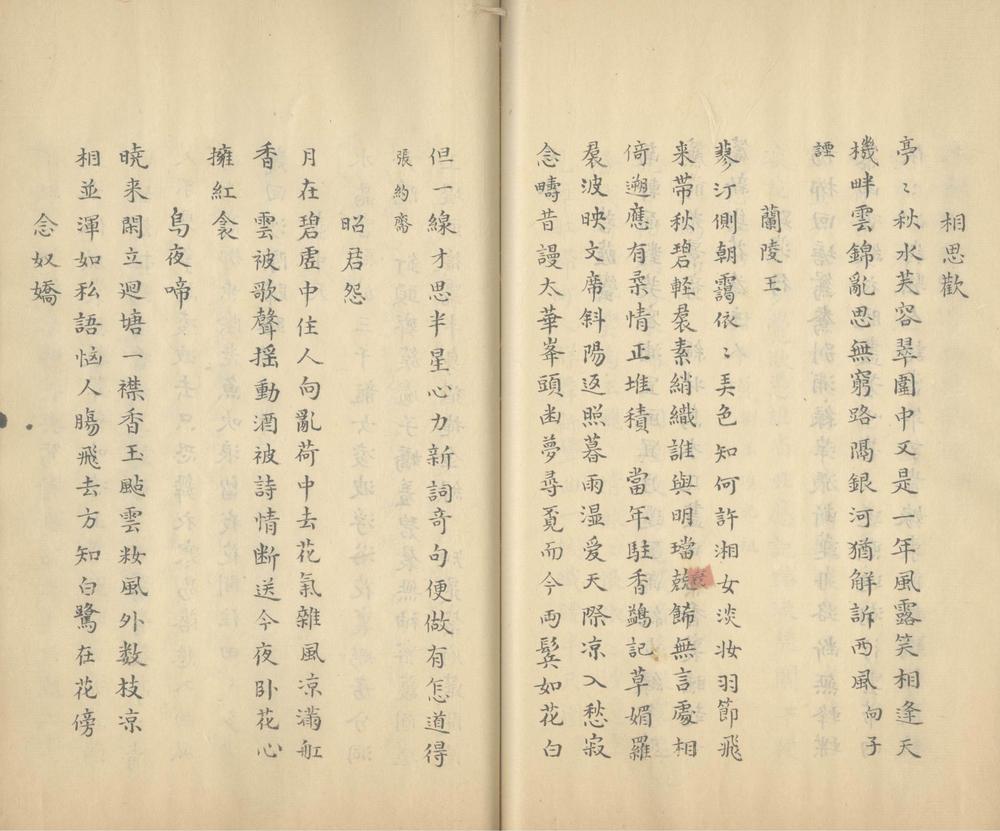 相思歡
亭〻秋水芙容翠圍中又是一年風露笑相逢天
機畔雲錦亂思無窮路隔銀河猶解訴西風 向子
諲
蘭陵王
蓼汀側朝靄依〻弄色知何許湘女淡妝羽節飛
来帶秋碧輕裠素綃織誰與明璫兢餙無言處相
倚遡應有柔情正堆積 當年駐香鷁記草媚羅
裠波映文席斜陽返照暮雨湿愛天際凉入愁寂
念疇昔謾太華峯頭幽夢尋覔而今兩鬂如花白
但一線才思半星心力新詞奇句便做有怎道得
張約齋
昭君怨
月在碧虚中住人向亂荷中去花氣雜風凉滿舡
香 雲被歌聲揺動酒被詩情断送今夜卧花心
擁紅衾
烏夜啼
曉来閑立迴塘一襟香玉颭雲妝風外数枝凉
相並渾如私語悩人腸飛去方知白鷺在花傍
念奴嬌